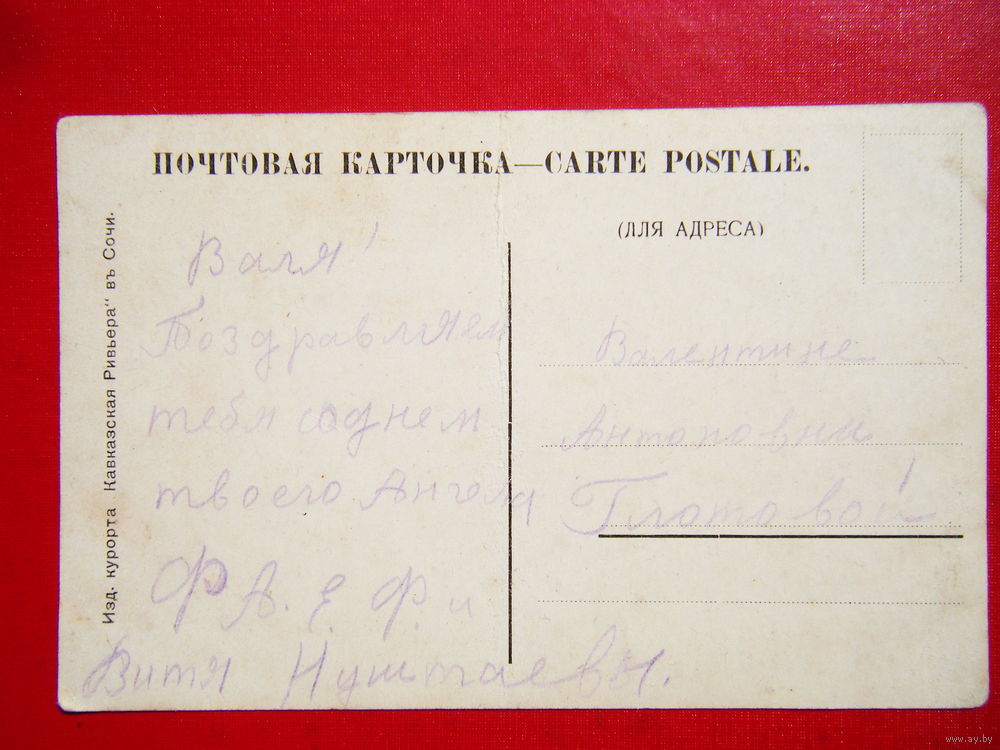 ПОЧТОВАЯ КАРТОЧКА—CARTE POSTALE.
(ДЛЯ АДРЕСА)
Изд. курорта Кавказская Ривьера“ въ Сочи.
Валя!
Поздравляем
тебя соднем
твоего Ангела
Ф А. Е. Ф. и
Витя Нуштаевы.
Валентине
Антоновни
Платовой
www.ay.by